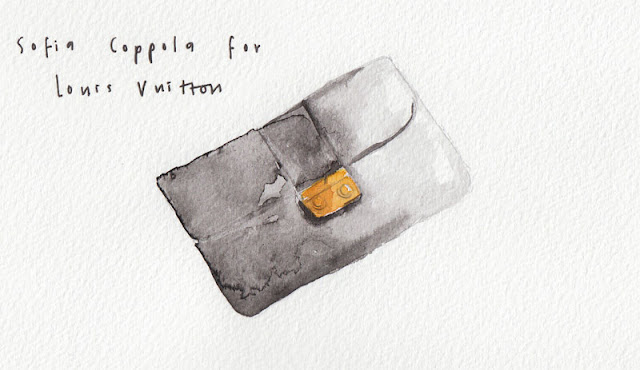 Sofia Coppola for
Louis Vuitton